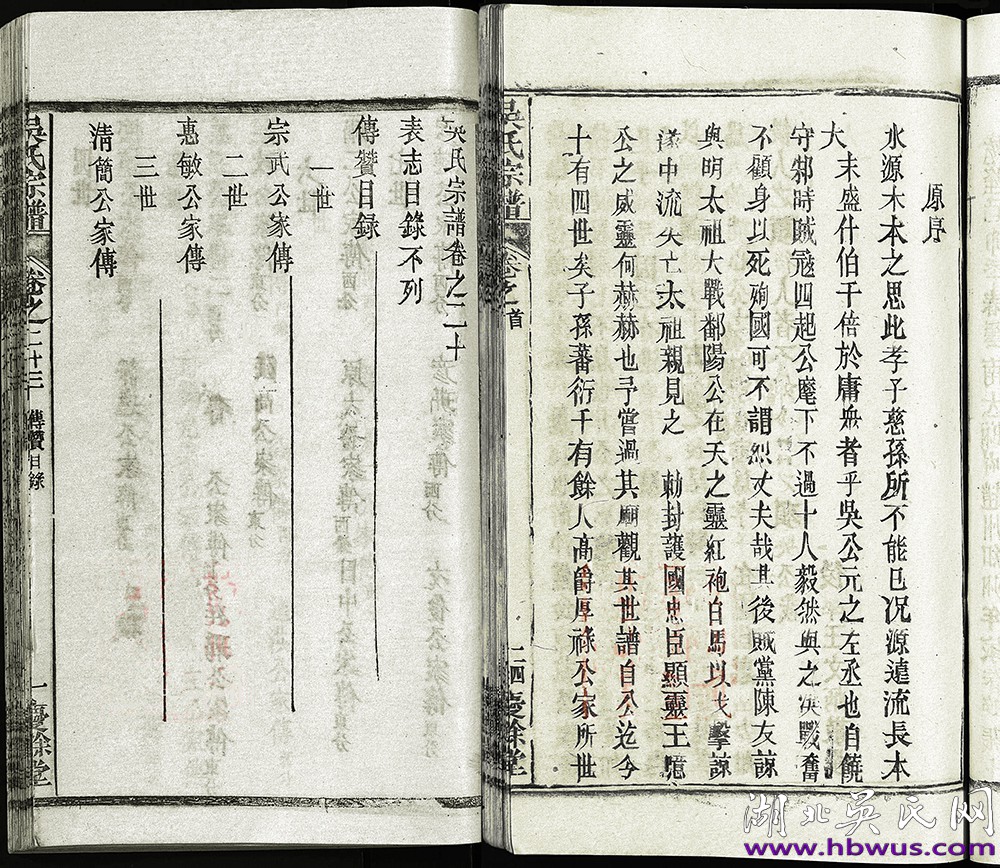 原序
水源木本之思此孝子慈孫所不能已况源遠流長本
大末盛什伯千倍於庸衆者乎吳公元之左丞也自饒
守鄀時賊冦四起公麾下不過十人毅然與之 戰奮
不顧身以死殉國可不謂烈丈夫哉其後賊黨陳友諒
與明太祖大戰鄱陽公在天之靈紅袍白馬以戈擊諒
中流矢亡太祖親見之 勅封護國忠臣顯靈王
公之威靈何赫赫也予嘗過其廟觀其世譜自公迄今
十有四世矣子孫蕃衍千有餘人高爵厚祿公家所世
吳氏宗譜
卷之首
二四
慶餘堂
吳氏宗譜卷之二十
表志目錄不列
傳贊目録
一世
宗武公家傳
二世
惠敏公家傳
三世
清簡公家傳
吳氏宗譜
卷之二十三
傳贊目錄
一
慶餘堂
湖北吳氏网
www.hbwus.com